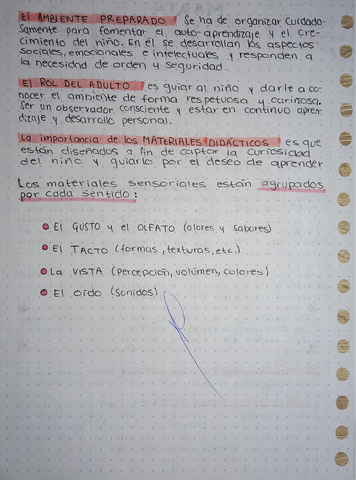 El AMBIENTE PREPARADO Se ha de organizar cuidado-
samente para fomentar el auto-aprendizaje y el cre-
cimiento del niño. En él se desarrollan los aspectos
sociales, emocionales e intelectuales y responden a
la necesidad de orden y seguridad.
El ROL DEL ADULTO es guiar al niño y darle a co-
nocer el ambiente de forma respetuosa y cariñosa.
Ser un observador consciente y estar en continuo apren-
dizaje y desarrollo personal.
La importancia de los MATERIALES DIDÁCTICOS es que
están diseñados a fin de captar la curiosidad
del niño y guiarlo por el deseo de aprender
Los materiales sensoriales están agrupados
por cada sentido:
El GUSTO y el OLFATO (olores y sabores)
El TACTO (formas, texturas, etc.)
La VISTA (Percepción, volúmen, colores)
El oído (sonidos)